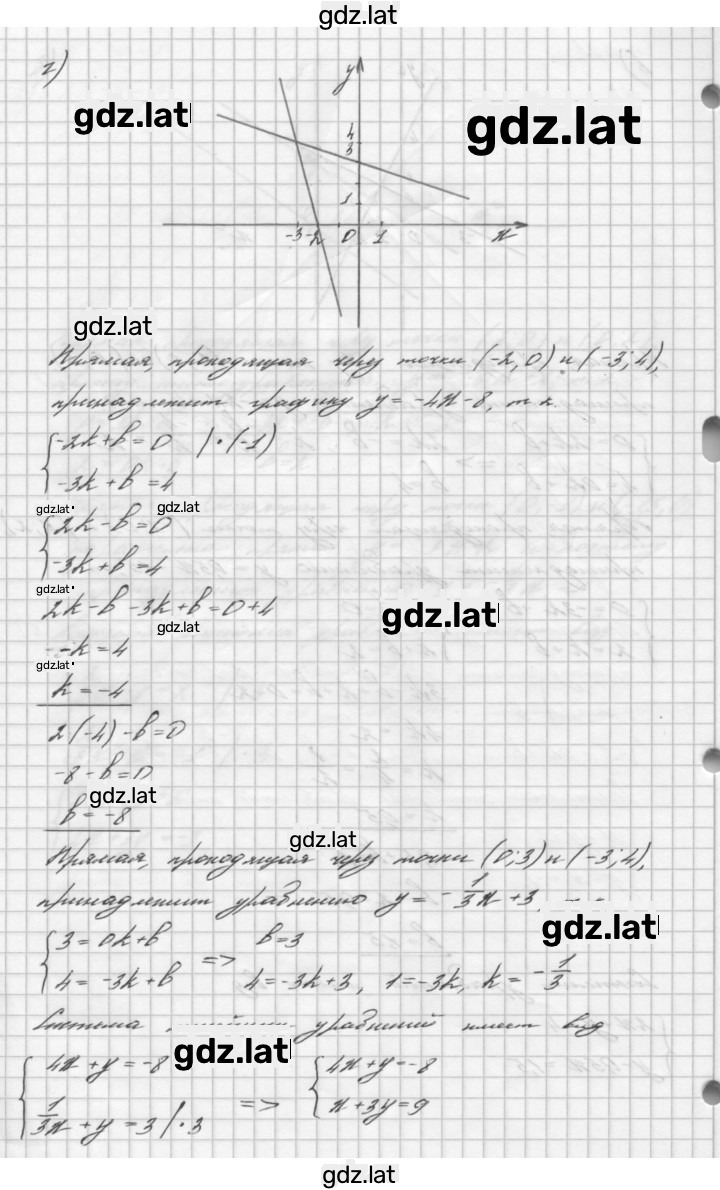 gdz.lat
г)
y
gdz.lat
gdz.lat
4
3
1
-3 -2 0 1 x
gdz.lat
Прямая, проходящая через точки (-2, 0) и (-3; 4),
принадлежит графику y = -4x - 8, т. к.
-2k + b = 0 | · (-1)
-3k + b = 4
gdz.lat gdz.lat
2k - b = 0
-3k + b = 4
gdz.lat
2k - b - 3k + b = 0 + 4
gdz.lat
gdz.lat
-k = 4
gdz.lat
k = -4
2(-4) - b = 0
-8 - b = 0
gdz.lat
b = -8
gdz.lat
Прямая, проходящая через точки (0; 3) и (-3; 4),
принадлежит уравнению y = -1/3x + 3
gdz.lat
3 = 0k + b => b = 3
4 = -3k + b 4 = -3k + 3, 1 = -3k, k = -1/3
Система уравнений имеет вид
gdz.lat
4x + y = -8 => 4x + y = -8
1/3x + y = 3 | · 3 x + 3y = 9
gdz.lat